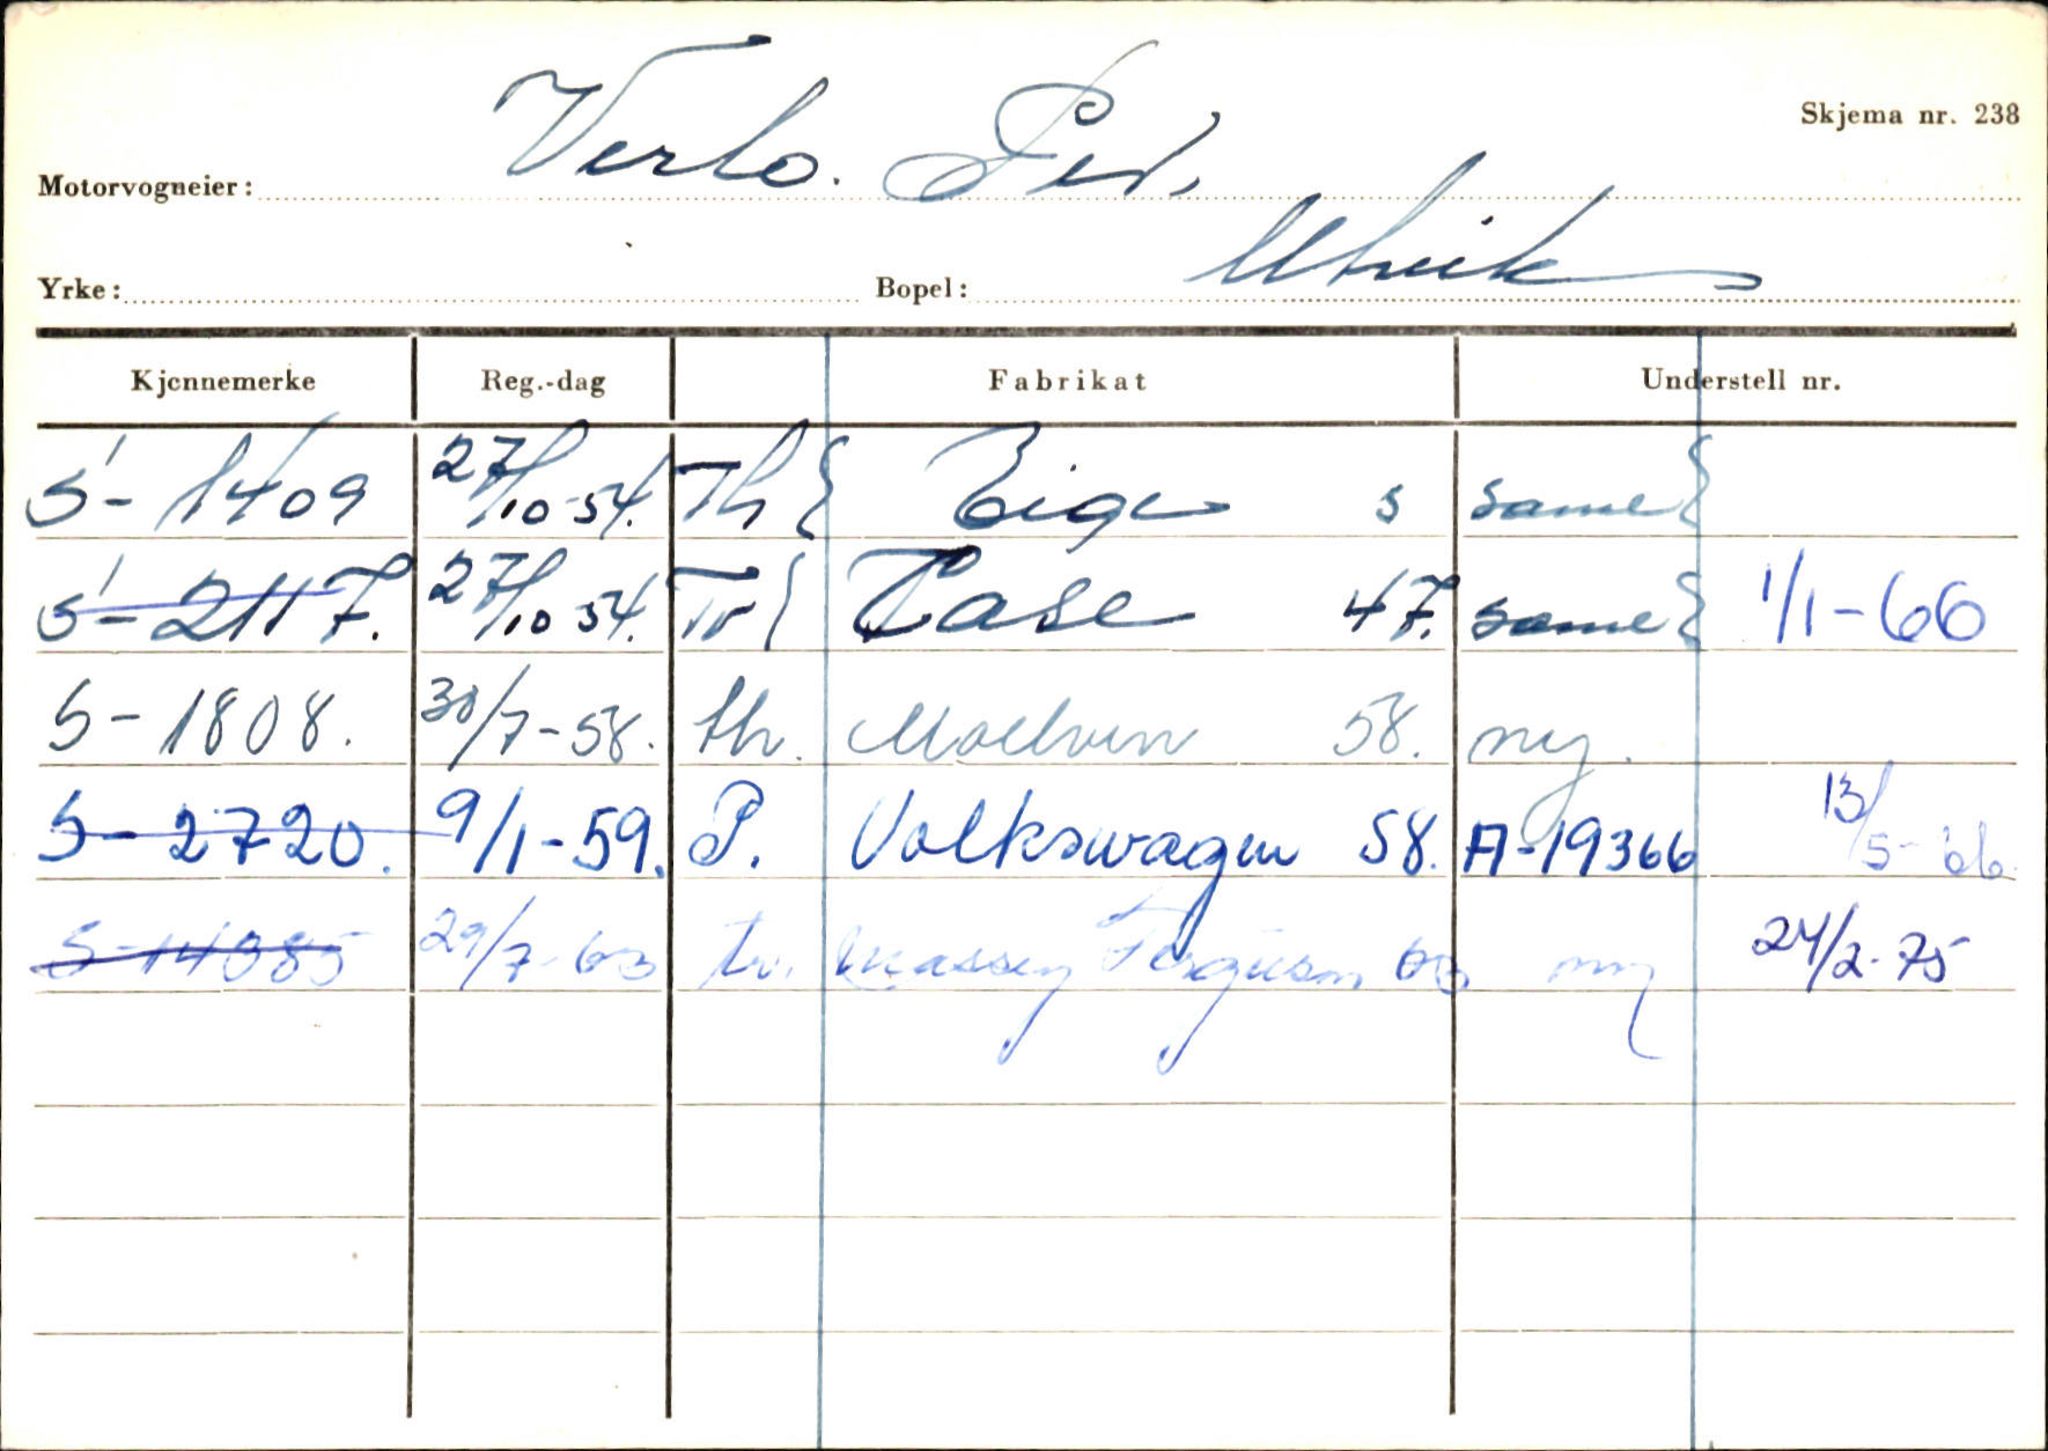 Skjema nr. 238
Motorvogneier: Verlo. Per.
Yrke: Bopel: Utvik
Kjennemerke Reg.-dag Fabrikat Understell nr.
S- 1409 27/10-54. Th { Eige s same }
S- 2117. 27/10 54. Tr { Case 47. same } 1/1-66
S- 1808. 30/7-58. th. Moelven 58. ny.
S- 2720. 9/1-59. P. Volkswagen 58. A-19366 13/5-66.
S-14385 29/7-63 tr. Massey Ferguson 63 ny 24/2-75